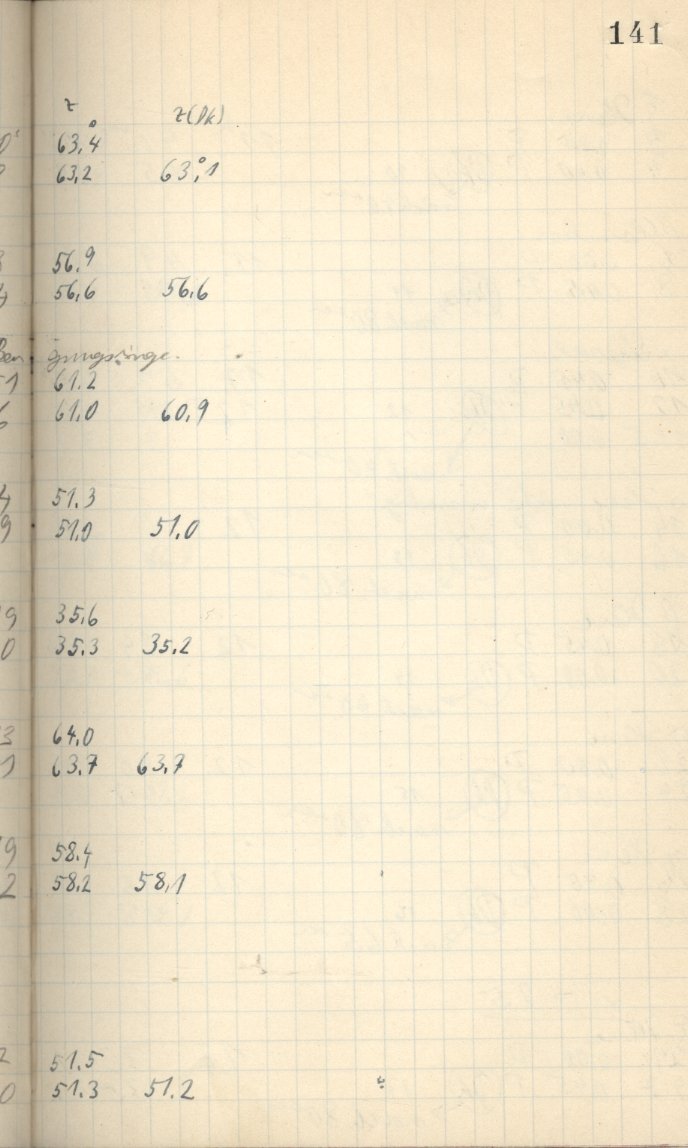 141
z z(Pk)
63,°4
63,2 63,°1
56,9
56,6 56,6
61,2
61,0 60,9
51,3
51,0 51,0
35,6
35,3 35,2
64,0
63,7 63,7
58,4
58,2 58,1
51,5
51,3 51,2